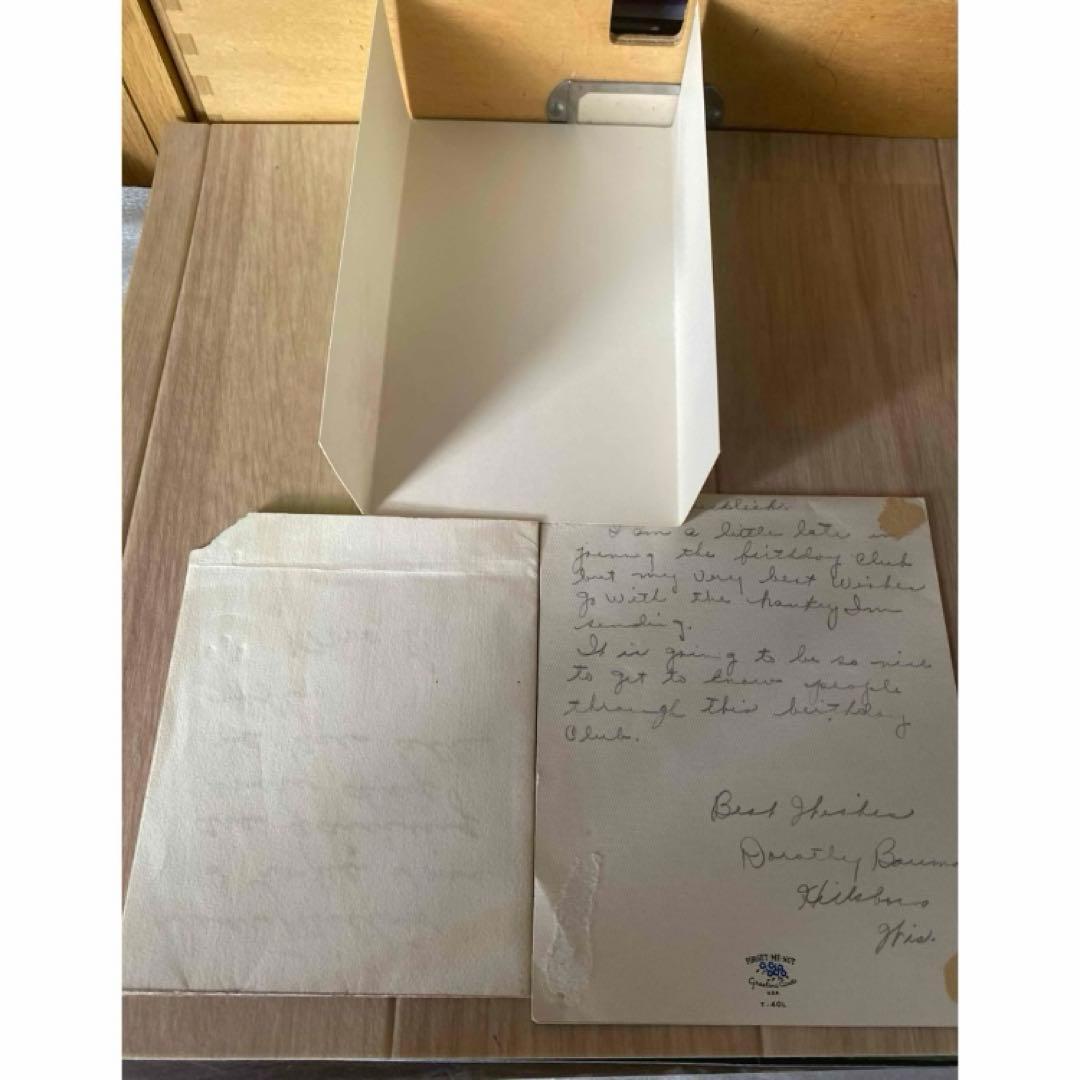 I am a little late in
joinnig the birthday club
but my very best Wishes
go with the hankey Im
sending.
It is going to be so nice
to get to know people
through this birthday
Club.
Best Wishes
Dorothy
Hillsboro
Wis.
FORGET ME NOT
Greeting Cards
USA